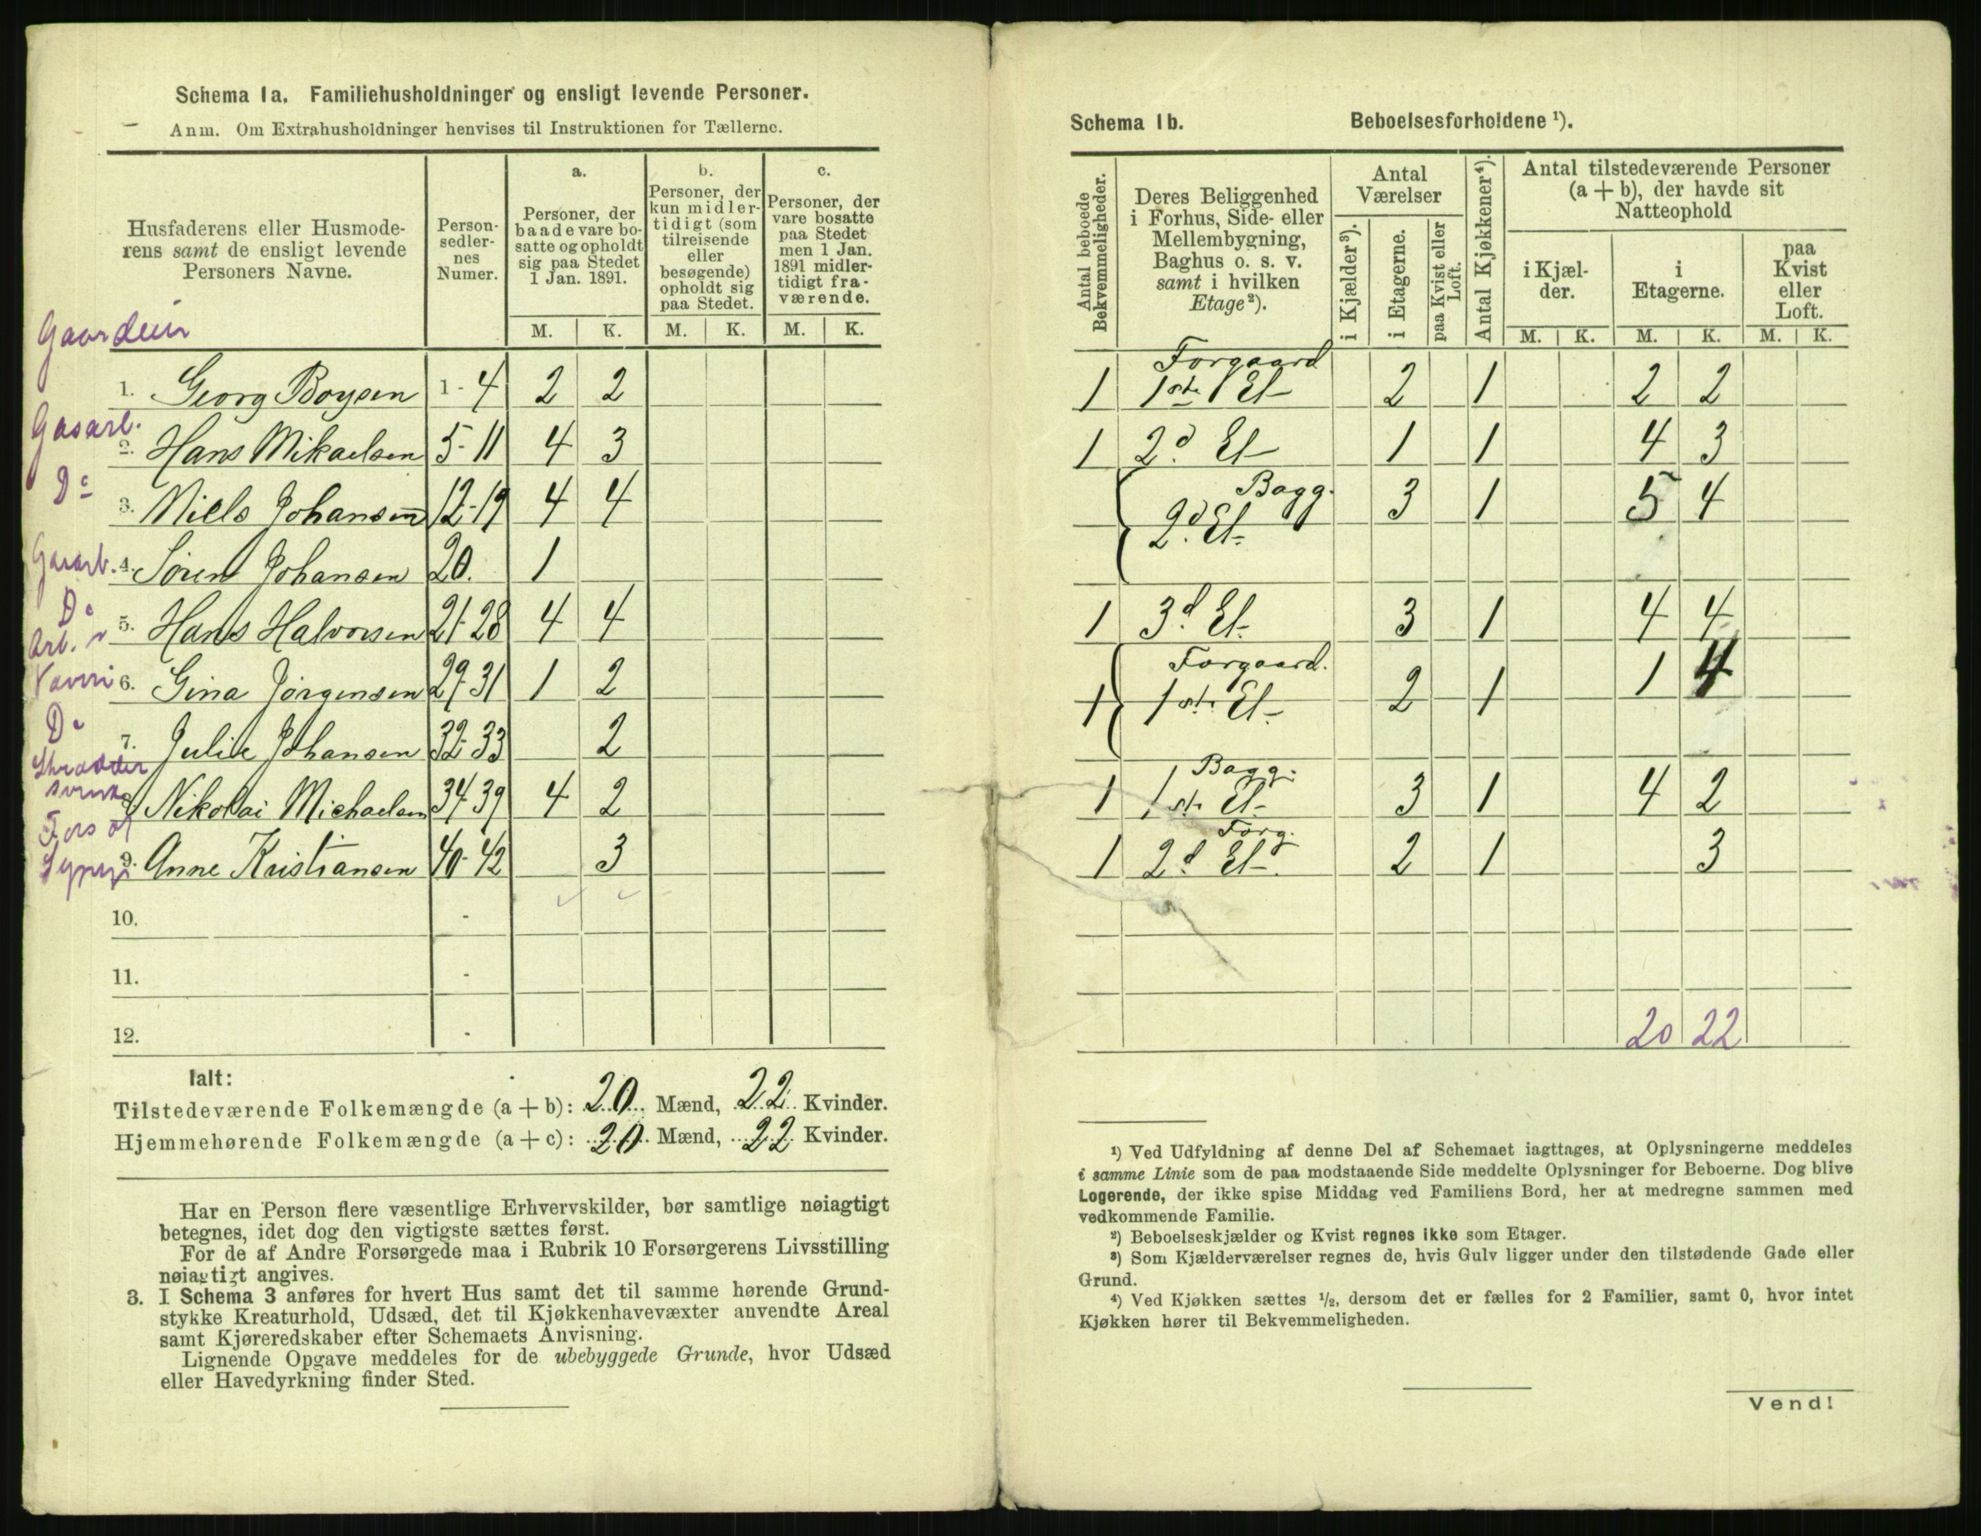 Schema 1a. Familiehusholdninger og ensligt levende Personer.
Anm. Om Extrahusholdninger henvises til Instruktionen for Tællerne.
Husfaderens eller Husmode-
rens samt de ensligt levende
Personers Navne.
Person-
sedler-
nes
Numer.
a.
Personer, der
baade vare bo-
satte og opholdt
sig paa Stedet
1 Jan. 1891.
b.
Personer, der
kun midler-
tidigt (som
tilreisende
eller
besøgende)
opholdt sig
paa Stedet.
c.
Personer, der
vare bosatte
paa Stedet
men 1 Jan.
1891 midler-
tidigt fra-
værende.
M. K. M. K. M. K.
1. Georg Boysen 1-4 2 2
Gasarb.
2. Hans Mikaelsen 5-11 4 3
Do
3. Niels Johansen 12-19 4 4
Gasarb. 4. Søren Johansen 20. 1
Do
5. Hans Halvorsen 21-28 4 4
Arb. v
6. Gina Jørgensen 29-31 1 2
Do
7. Julie Johansen 32-33 2
8. Nikolai Michaelsen 34-39 4 2
Fors af
9. Anne Kristiansen 40-42 3
10. -
11. -
12. -
Ialt:
Tilstedeværende Folkemængde (a + b): 20 Mænd, 22 Kvinder.
Hjemmehørende Folkemængde (a + c): 20 Mænd, 22 Kvinder.
Har en Person flere væsentlige Erhvervskilder, bør samtlige nøiagtigt
betegnes, idet dog den vigtigste sættes først.
For de af Andre Forsørgede maa i Rubrik 10 Forsørgerens Livsstilling
nøiagtigt angives.
3. I Schema 3 anføres for hvert Hus samt det til samme hørende Grund-
stykke Kreaturhold, Udsæd, det til Kjøkkenhavevæxter anvendte Areal
samt Kjøreredskaber efter Schemaets Anvisning.
Lignende Opgave meddeles for de ubebyggede Grunde, hvor Udsæd
eller Havedyrkning finder Sted.
Schema 1b. Beboelsesforholdene ¹).
Antal beboede
Bekvemmeligheder.
Deres Beliggenhed
i Forhus, Side- eller
Mellembygning,
Baghus o. s. v.
samt i hvilken
Etage²).
Antal
Værelser
i Kjælder³).
i Etagerne.
paa Kvist eller
Loft.
Antal Kjøkkener⁴).
Antal tilstedeværende Personer
(a + b), der havde sit
Natteophold
i Kjæl-
der.
i
Etagerne.
paa
Kvist
eller
Loft.
M. K. M. K. M. K.
Forgaard
1 1ste Et 2 1 2 2
1 2d Et 1 1 4 3
Bagg.
2d Et. 3 1 5 4
1 3d Et. 3 1 4 4
Forgaard.
1 1ste Et 2 1 1 4
Bagg.
1 1ste Et 3 1 4 2
Forg.
1 2d Et 2 1 3
20 22
¹) Ved Udfyldning af denne Del af Schemaet iagttages, at Oplysningerne meddeles
i samme Linie som de paa modstaaende Side meddelte Oplysninger for Beboerne. Dog blive
Logerende, der ikke spise Middag ved Familiens Bord, her at medregne sammen med
vedkommende Familie.
²) Beboelseskjælder og Kvist regnes ikke som Etager.
³) Som Kjælderværelser regnes de, hvis Gulv ligger under den tilstødende Gade eller
Grund.
⁴) Ved Kjøkken sættes ½, dersom det er fælles for 2 Familier, samt 0, hvor intet
Kjøkken hører til Bekvemmeligheden.
Vend!